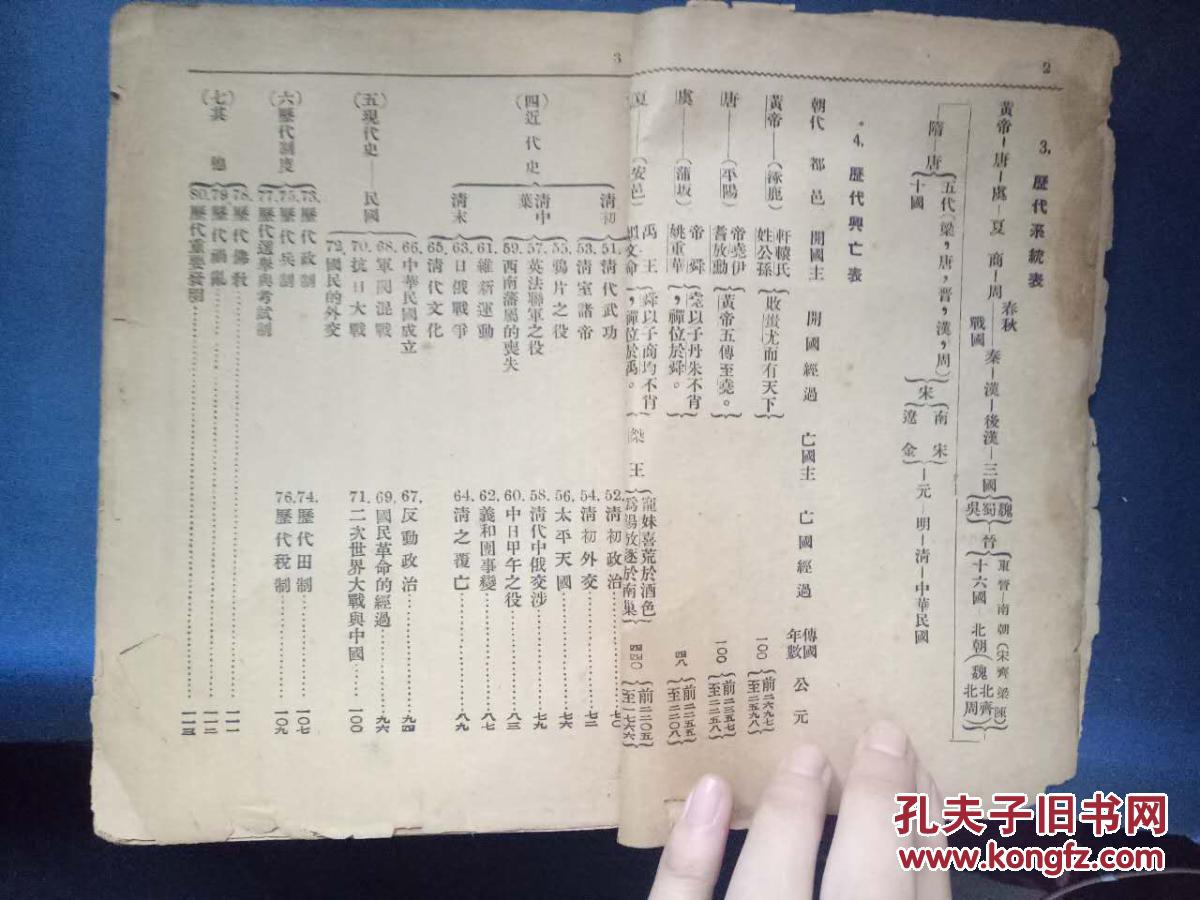 2
3. 歷代系統表
黃帝—唐—虞—夏 商—周 春秋 戰國 —秦—漢—後漢—三國 魏蜀吳 —晉 東晉—南朝(宋齊梁陳) 十六國 北朝(魏 北齊 北周)
隋—唐 五代(梁,唐,晉,漢,周) 十國 宋 南宋 遼金 —元—明—清—中華民國
4. 歷代興亡表
朝代 都邑 開國主 開國經過 亡國主 亡國經過 傳國年數 公元
黃帝——(涿鹿) 軒轅氏姓公孫 敗蚩尤而有天下 一〇〇 前二六九七至二五九八
唐——(平陽) 帝堯伊耆放勳 黃帝五傳至堯。 一〇〇 前二三五七至二二五八
虞——(蒲坂) 帝舜姚重華 堯以子丹朱不肖,禪位於舜。 四八 前二二五五至二二〇八
夏——(安邑) 禹王 文命 舜以子商均不肖,禪位於禹。 桀王 寵妹喜荒於酒色爲湯放逐於南巢 前二二〇五至一七六六
3
(四)近代史
清初
51. 清代武功 52. 清初政治……七〇
53. 清室諸帝 54. 清初外交……七二
清中葉
55. 鴉片之役 56. 太平天國……七六
57. 英法聯軍之役 58. 清代中俄交涉……七九
59. 西南藩屬的喪失 60. 中日甲午之役……八三
清末
61. 維新運動 62. 義和團事變……八七
63. 日俄戰爭 64. 清之覆亡……八九
65. 清代文化
(五)現代史——民國
66. 中華民國成立 67. 反動政治……九四
68. 軍閥混戰 69. 國民革命的經過……九六
70. 抗日大戰 71. 二次世界大戰與中國……一〇〇
72. 國民的外交
(六)歷代制度
73. 歷代政制 74. 歷代田制……一〇七
75. 歷代兵制 76. 歷代稅制……一〇九
77. 歷代選舉與考試制
(七)其他
78. 歷代佛教……一一一
79. 歷代禍亂……一一二
80. 歷代重要發明……一一三
孔夫子旧书网
www.kongfz.com